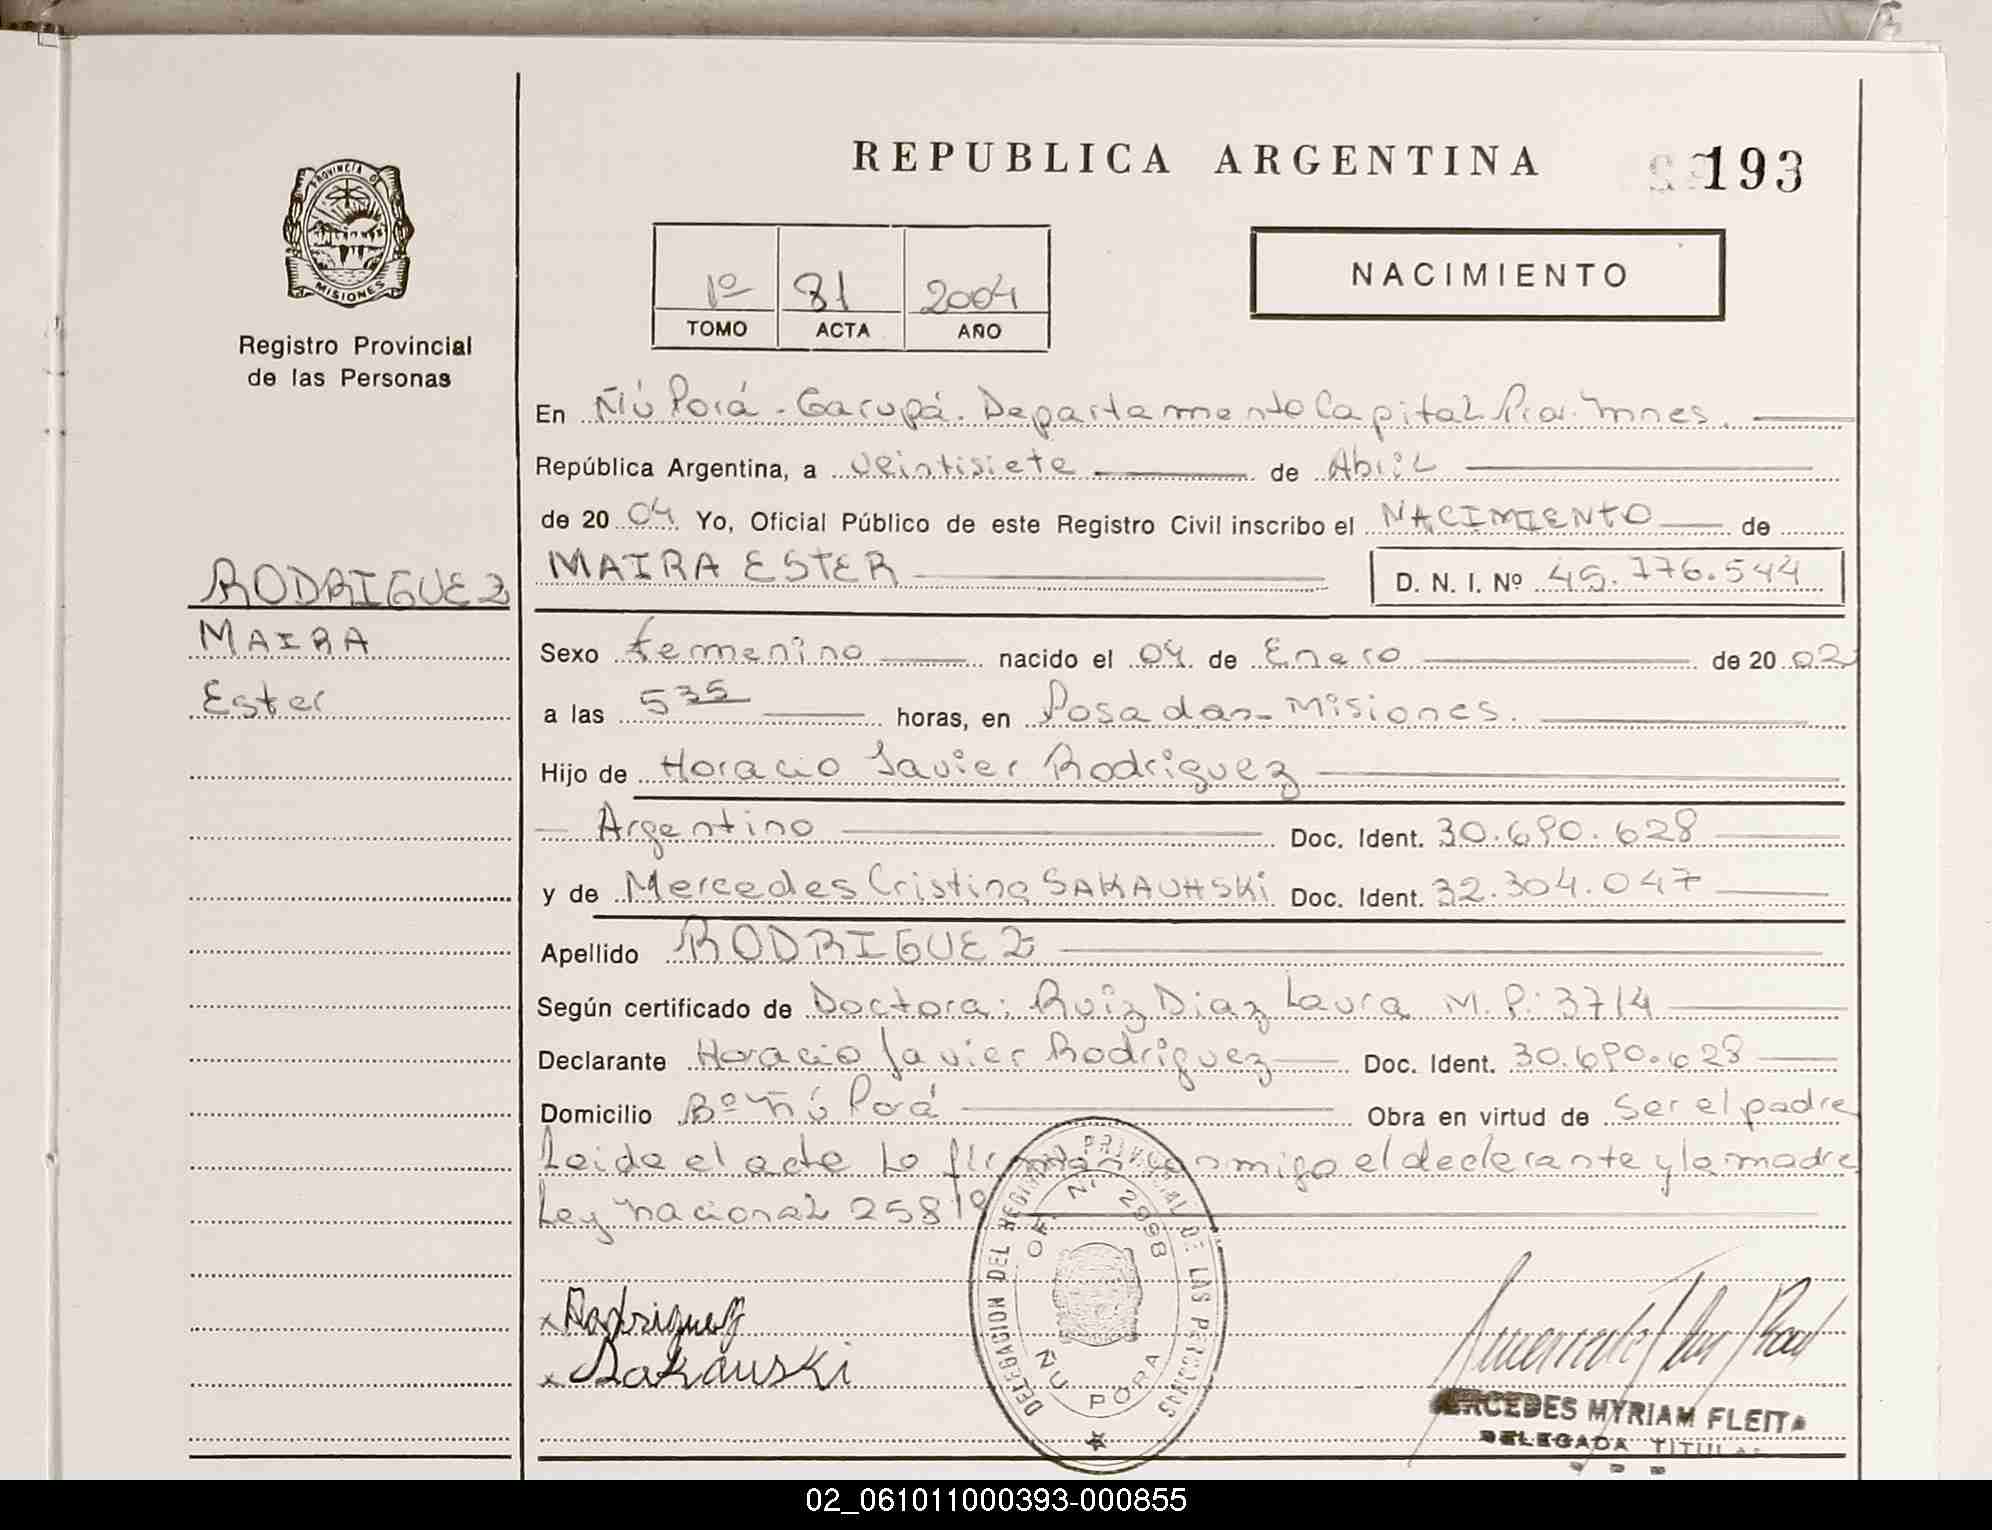 REPUBLICA ARGENTINA
193
PROVINCIA DE
MISIONES
Registro Provincial
de las Personas
1º 81 2004
TOMO ACTA AÑO
NACIMIENTO
En Ñú Porá - Garupá. Departamento Capital Prov. Mnes.
República Argentina, a veintisiete de Abril
de 2004 Yo, Oficial Público de este Registro Civil inscribo el NACIMIENTO de
MAIRA ESTER D. N. I. Nº 45.776.544
RODRIGUEZ
MAIRA
Ester
Sexo femenino nacido el 04 de Enero de 2002
a las 5 35 horas, en Posadas - Misiones.
Hijo de Horacio Javier Rodriguez
Argentino Doc. Ident. 30.690.628
y de Mercedes Cristina SAKAUHSKi Doc. Ident. 32.304.047
Apellido RODRIGUEZ
Según certificado de Doctora: Ruiz Diaz Laura M.P: 3714
Declarante Horacio Javier Rodriguez Doc. Ident. 30.690.628
Domicilio Bº Ñú Porá Obra en virtud de ser el padre
Leida el acta lo firman conmigo el declarante y la madre
Ley nacional 25819
DELEGACION DEL REGISTRO PROVINCIAL DE LAS PERSONAS
OF. Nº 2998
ÑU PORA
x Rodriguez
x Sakauski
MERCEDES MYRIAM FLEITA
DELEGADA TITULAR
02_061011000393-000855